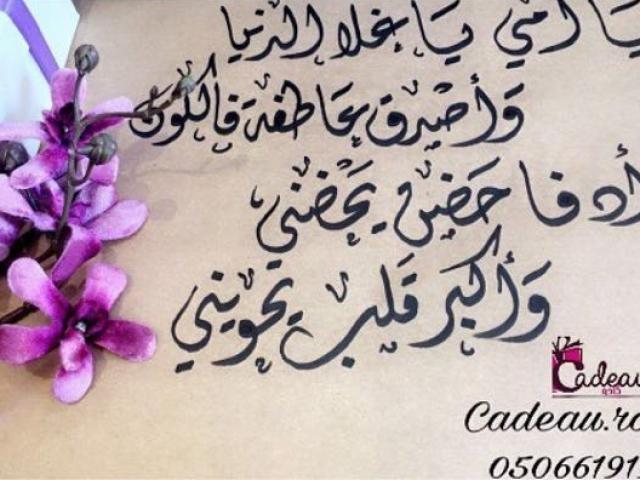 يا أمي يا غلا الدنيا
وأصدق عاطفة فالكون
أدفا حضن يحضني
وأكبر قلب يحويني
Cadeau
كادو
Cadeau.ro
050661919